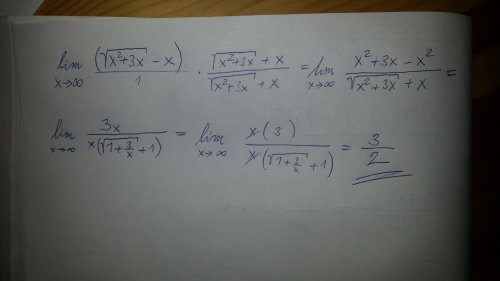 lim x→∞ (√(x²+3x) - x)/1 · (√(x²+3x) + x)/(√(x²+3x) + x) = lim x→∞ (x²+3x-x²)/(√(x²+3x) + x) =
lim x→∞ 3x/(x(√(1+3/x)+1)) = lim x→∞ x(3)/(x(√(1+3/x)+1)) = 3/2